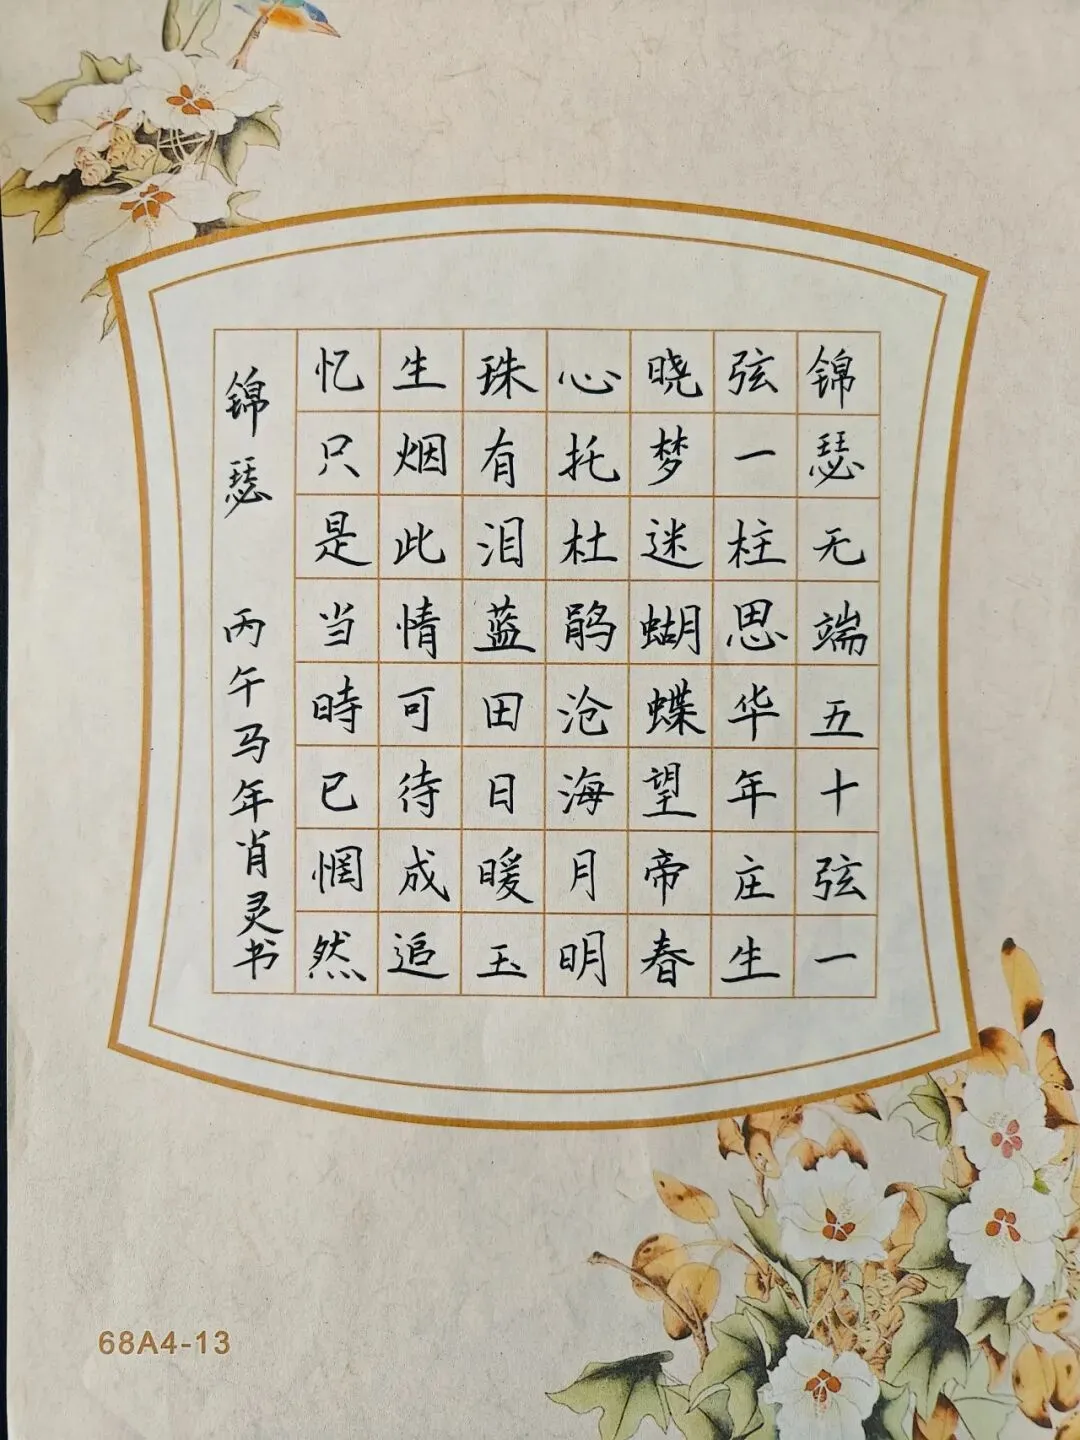 锦瑟无端五十弦一
弦一柱思华年庄生
晓梦迷蝴蝶望帝春
心托杜鹃沧海月明
珠有泪蓝田日暖玉
生烟此情可待成追
忆只是当時已惘然
锦瑟 丙午马年肖灵书
68A4-13